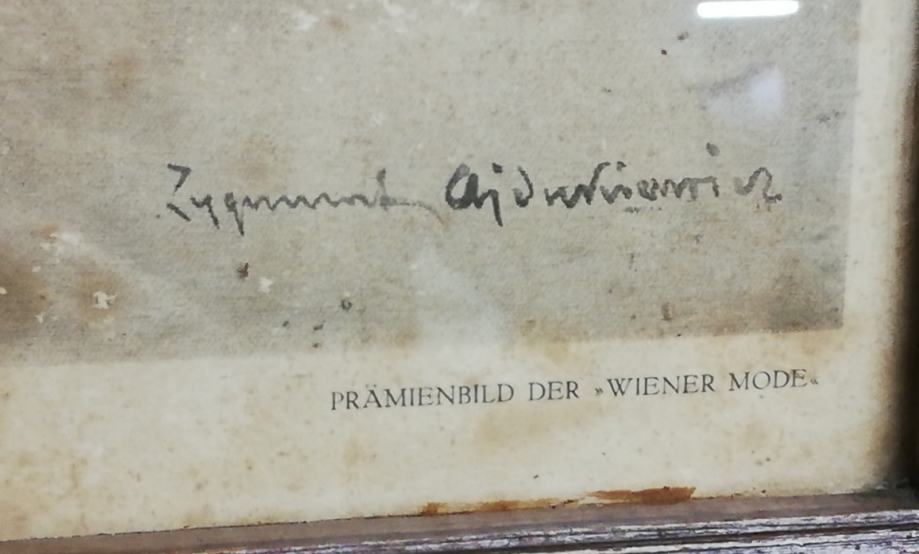 Zygmunt Ajdukiewicz
PRÄMIENBILD DER »WIENER MODE«